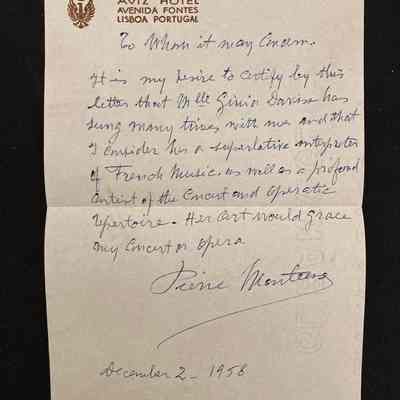 AVIZ HOTEL
AVENIDA FONTES
LISBOA PORTUGAL
To Whom it may Concern.
It is my desire to certify by this
letter that Mlle Ginia Davis has
sung many times with me and that
I consider her a superlative interpreter
of French Music as well as a profond
artist of the Concert and Operatic
repertoire. Her art would grace
any Concert or Opera
Pierre Monteux
December 2 - 1956